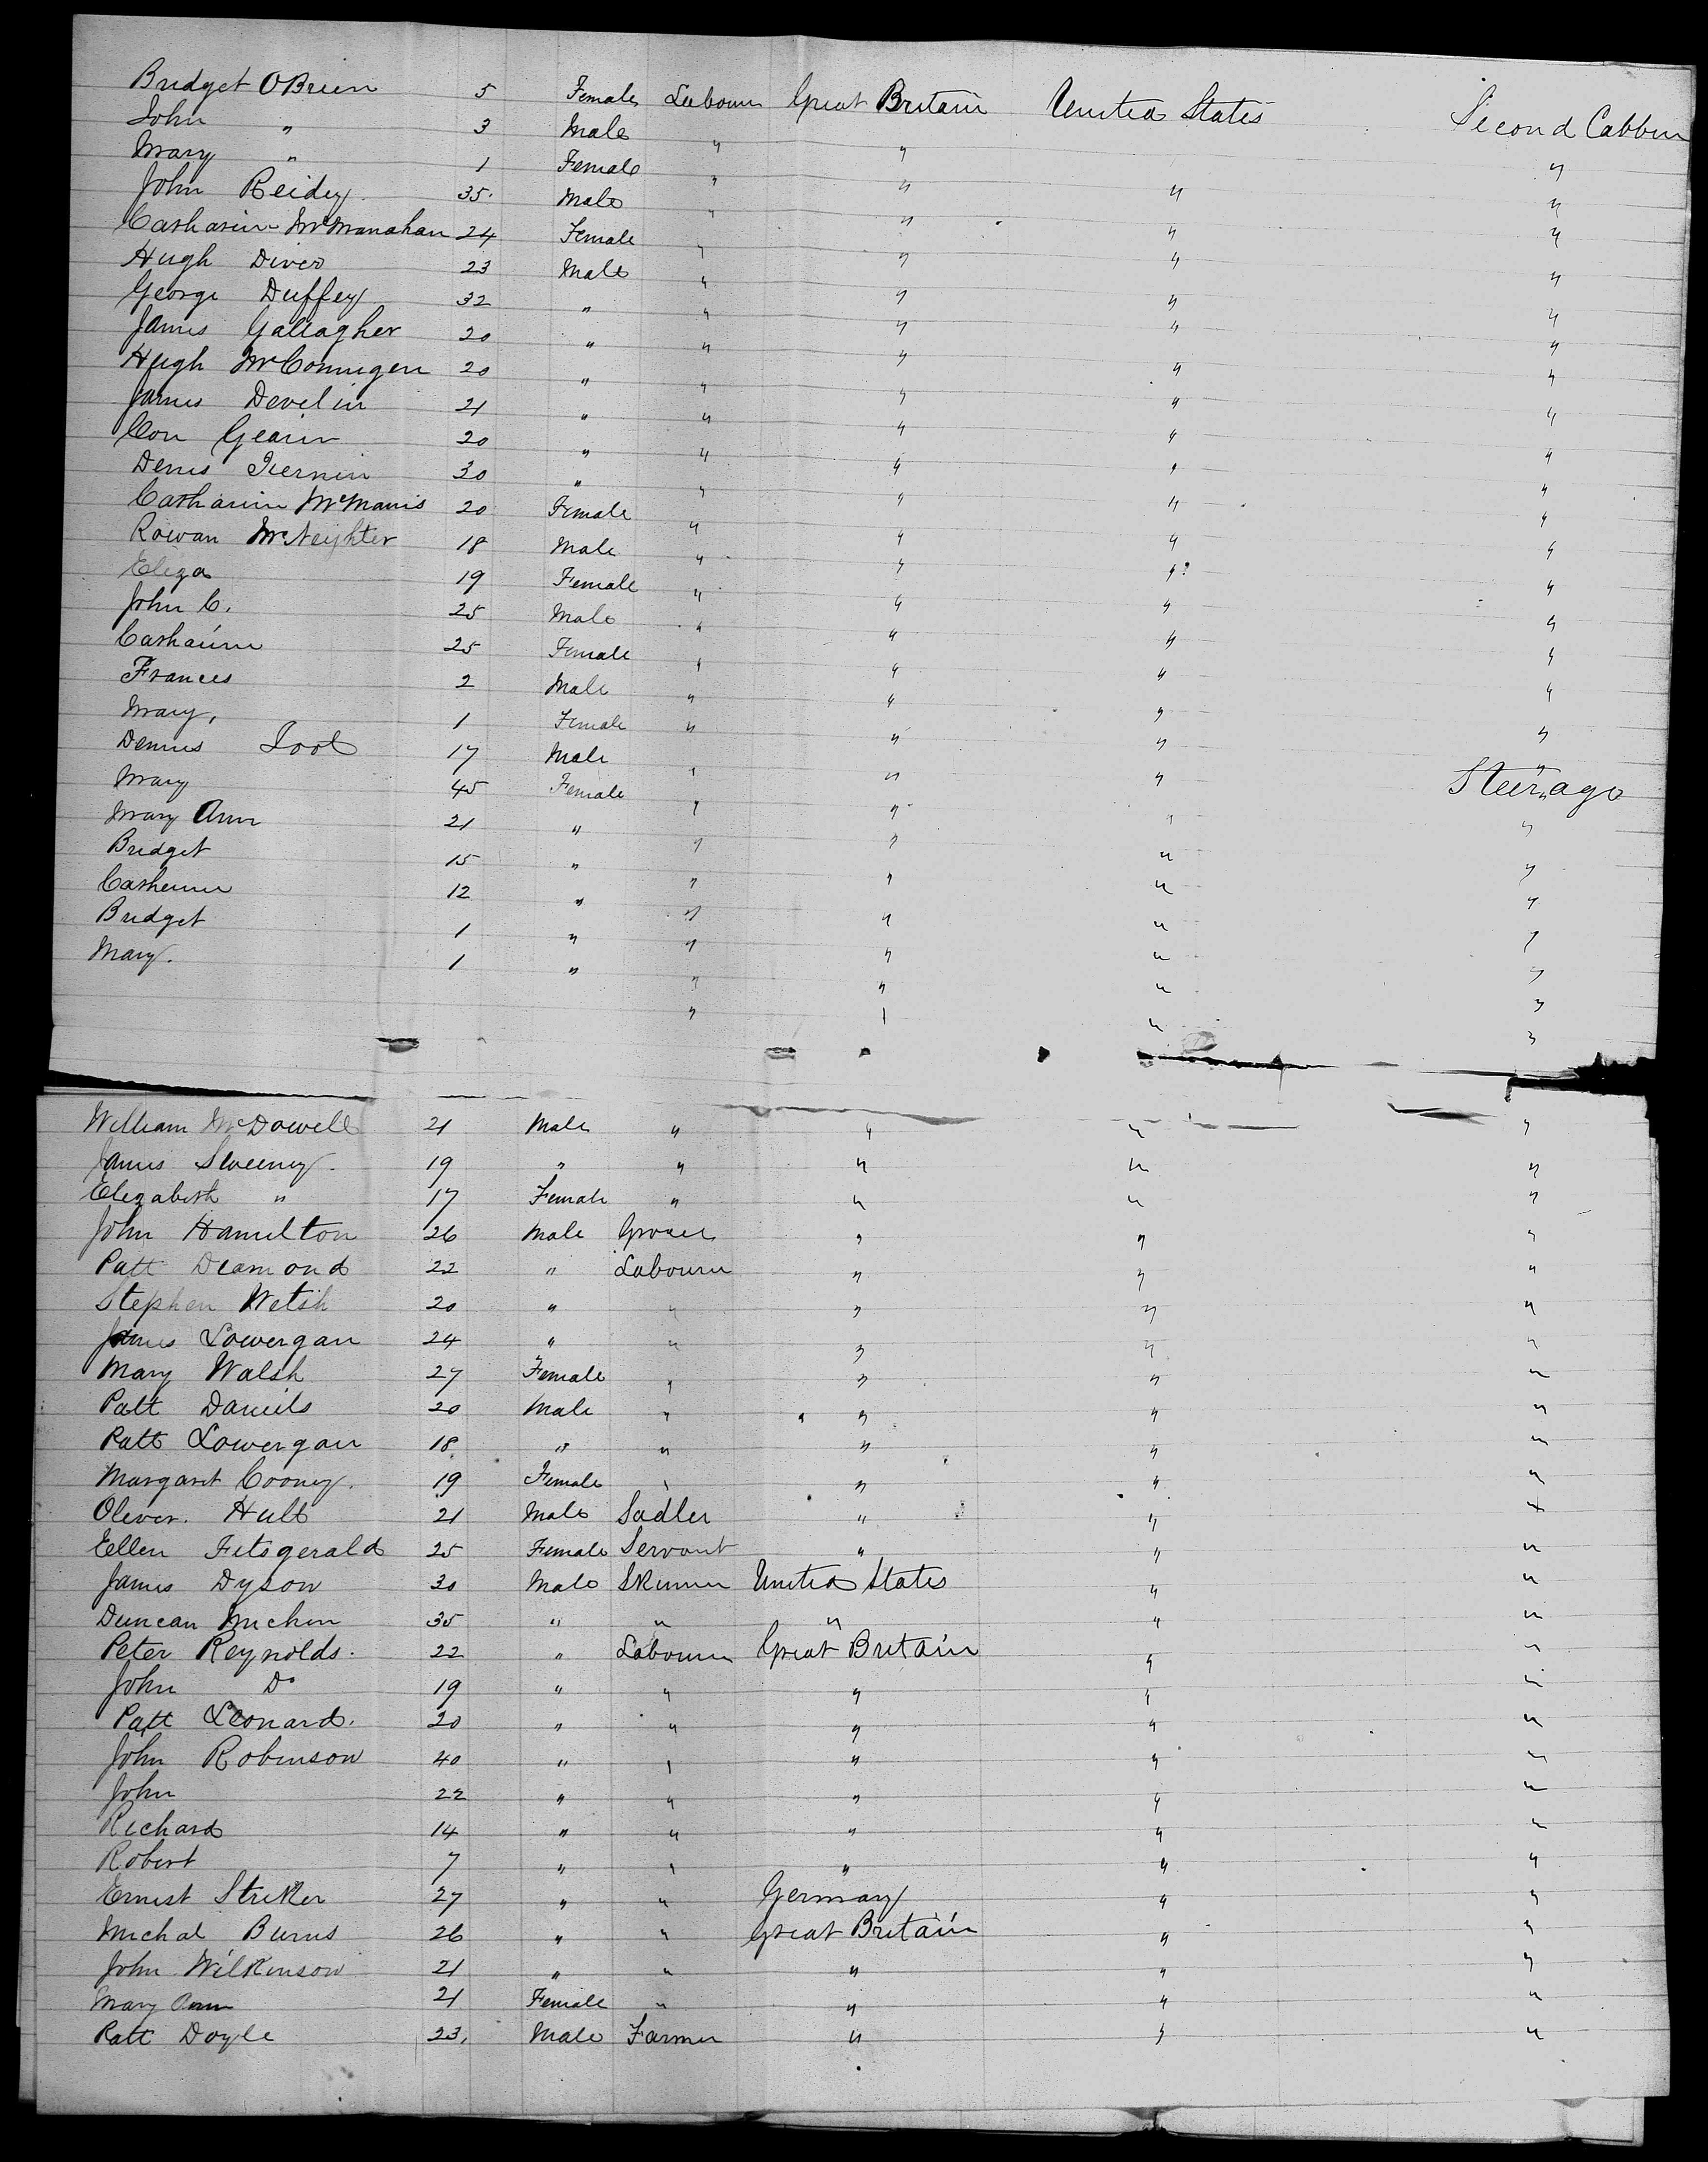 Bridget OBrien 5 Female Labourer Great Britain United States Second Cabbin
John " 3 Male " " "
Mary " 1 Female " " " "
John Reidy 35 Male " " " "
Catharine McManahan 24 Female " " " "
Hugh Diver 23 Male " " " "
George Duffey 32 " " " " "
James Gallagher 20 " " " " "
Hugh McConnigen 20 " " " " "
James Develin 21 " " " " "
Con Gearin 20 " " " " "
Denis Kernin 30 " " " " "
Catharine McManis 20 Female " " " "
Rowan McNeighter 18 Male " " " "
Eliza 19 Female " " " "
John C. 25 Male " " " "
Catharine 25 Female " " " "
Frances 2 Male " " " "
Mary, 1 Female " " " "
Dennis Tool 17 Male " " " Steerage
Mary 45 Female " " " "
Mary Ann 21 " " " " "
Bridget 15 " " " " "
Catherine 12 " " " " "
Bridget 1 " " " " "
Mary. 1 " " " " "
William McDowell 21 Male " " " "
James Sweeney 19 " " " " "
Elizabeth " 17 Female " " " "
John Hamilton 26 Male Grocer " " "
Patt Diamond 22 " Labourer " " "
Stephen Welsh 20 " " " " "
James Lowergan 24 " " " " "
Mary Walsh 27 Female " " " "
Patt Daniels 20 Male " " " "
Patt Lowergan 18 " " " " "
Margaret Cooney 19 Female " " " "
Oliver. Hull 21 Male Sadler " " "
Ellen Fitsgerald 25 Female Servant " " "
James Dyson 30 Male Skinner United States " "
Duncan 35 " " " " "
Peter Reynolds. 22 " Labourer Great Britain " "
John Do 19 " " " " "
Patt Leonard. 20 " " " " "
John Robinson 40 " " " " "
John 22 " " " " "
Richard 14 " " " " "
Robert 7 " " " " "
Ernest Striker 27 " " Germany " "
Michal Burns 26 " " Great Britain " "
John Wilkinson 21 " " " " "
Mary Ann 21 Female " " " "
Patt Doyle 23, Male Farmer " " "